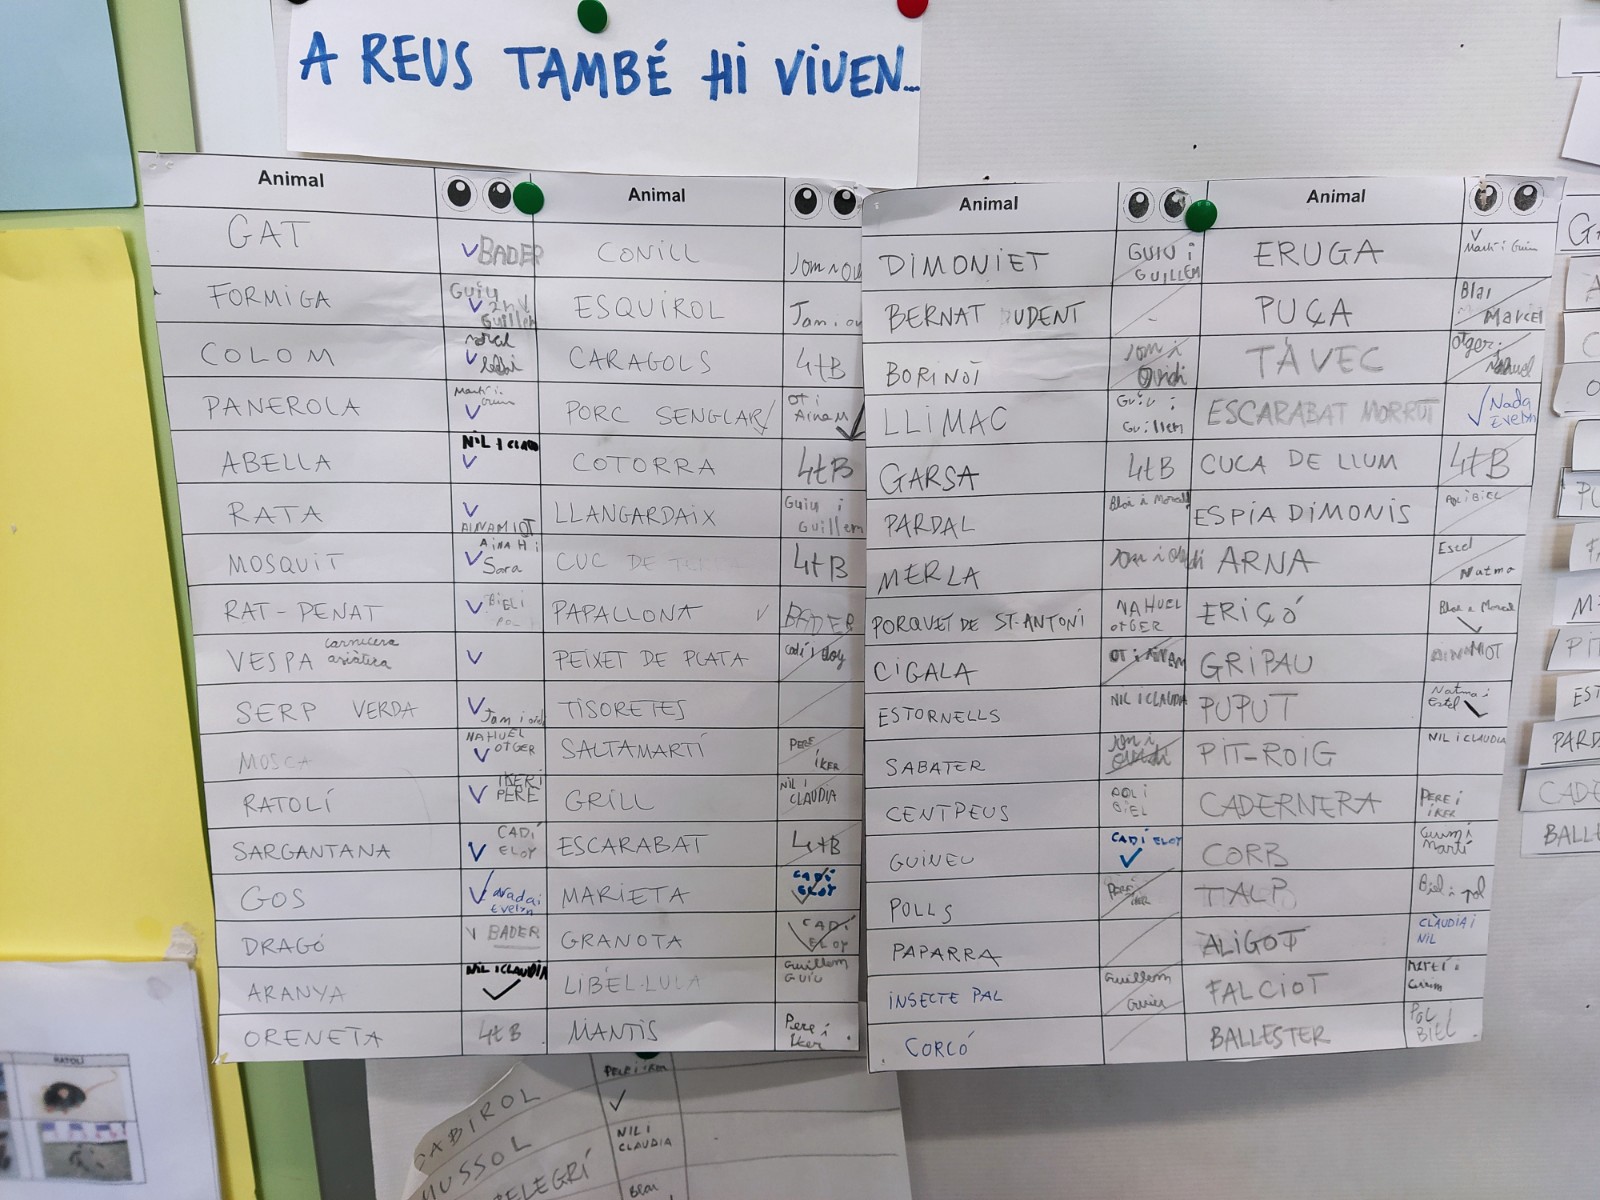 A REUS TAMBÉ HI VIUEN...
Animal Animal
GAT BADER CONILL
FORMIGA Guiu Guillem ESQUIROL
COLOM CARAGOLS 4tB
PANEROLA Martí i PORC SENGLAR OT i AINAM
ABELLA NIL I COTORRA 4tB
RATA AINAM I OT LLANGARDAIX Guiu i Guillem
MOSQUIT AINA H i Sara CUC DE 4tB
RAT-PENAT BIEL i POL PAPALLONA BADER
VESPA carnicera asiàtica PEIXET DE PLATA Cadí i Eloy
SERP VERDA TISORETES
MOSCA NAHUEL OTGER SALTAMARTÍ PERE IKER
RATOLÍ IKER i PERE GRILL NIL i CLAUDIA
SARGANTANA CADÍ ELOY ESCARABAT 4tB
GOS Nada i Evelyn MARIETA CADÍ ELOY
DRAGÓ BADER GRANOTA CADÍ ELOY
ARANYA NIL I CLAUDIA LIBÈL·LULA Guillem GUIU
ORENETA 4tB MANTIS Pere i Iker
Animal Animal
DIMONIET GUIU i GUILLEM ERUGA Martí i
BERNAT PUDENT PUÇA Blai Marcel
BORINOT Jom i Ovidi TÀVEC Otger i Nahuel
LLIMAC Guiu i Guillem ESCARABAT MORRUT Nada Evelyn
GARSA 4tB CUCA DE LLUM 4tB
PARDAL ESPIA DIMONIS POL i BIEL
MERLA ARNA Estel Natma
PORQUET DE ST. ANTONI NAHUEL OTGER ERIÇÓ
CIGALA OT i AINAM GRIPAU AINAM OT
ESTORNELLS NIL I CLAUDIA PUPUT Natma i Estel
SABATER Jom i Ovidi PIT-ROIG NIL I CLAUDIA
CENTPEUS POL i BIEL CADERNERA PERE i IKER
GUINEU CADÍ ELOY CORB Martí
POLLS Pere i Iker TALP Biel i Pol
PAPARRA ALIGOT CLÀUDIA i NIL
INSECTE PAL Guillem FALCIOT MARTÍ i
CORCÓ BALLESTER POL BIEL
CABIROL PERE i IKER
MUSSOL NIL i CLAUDIA
RATOLÍ